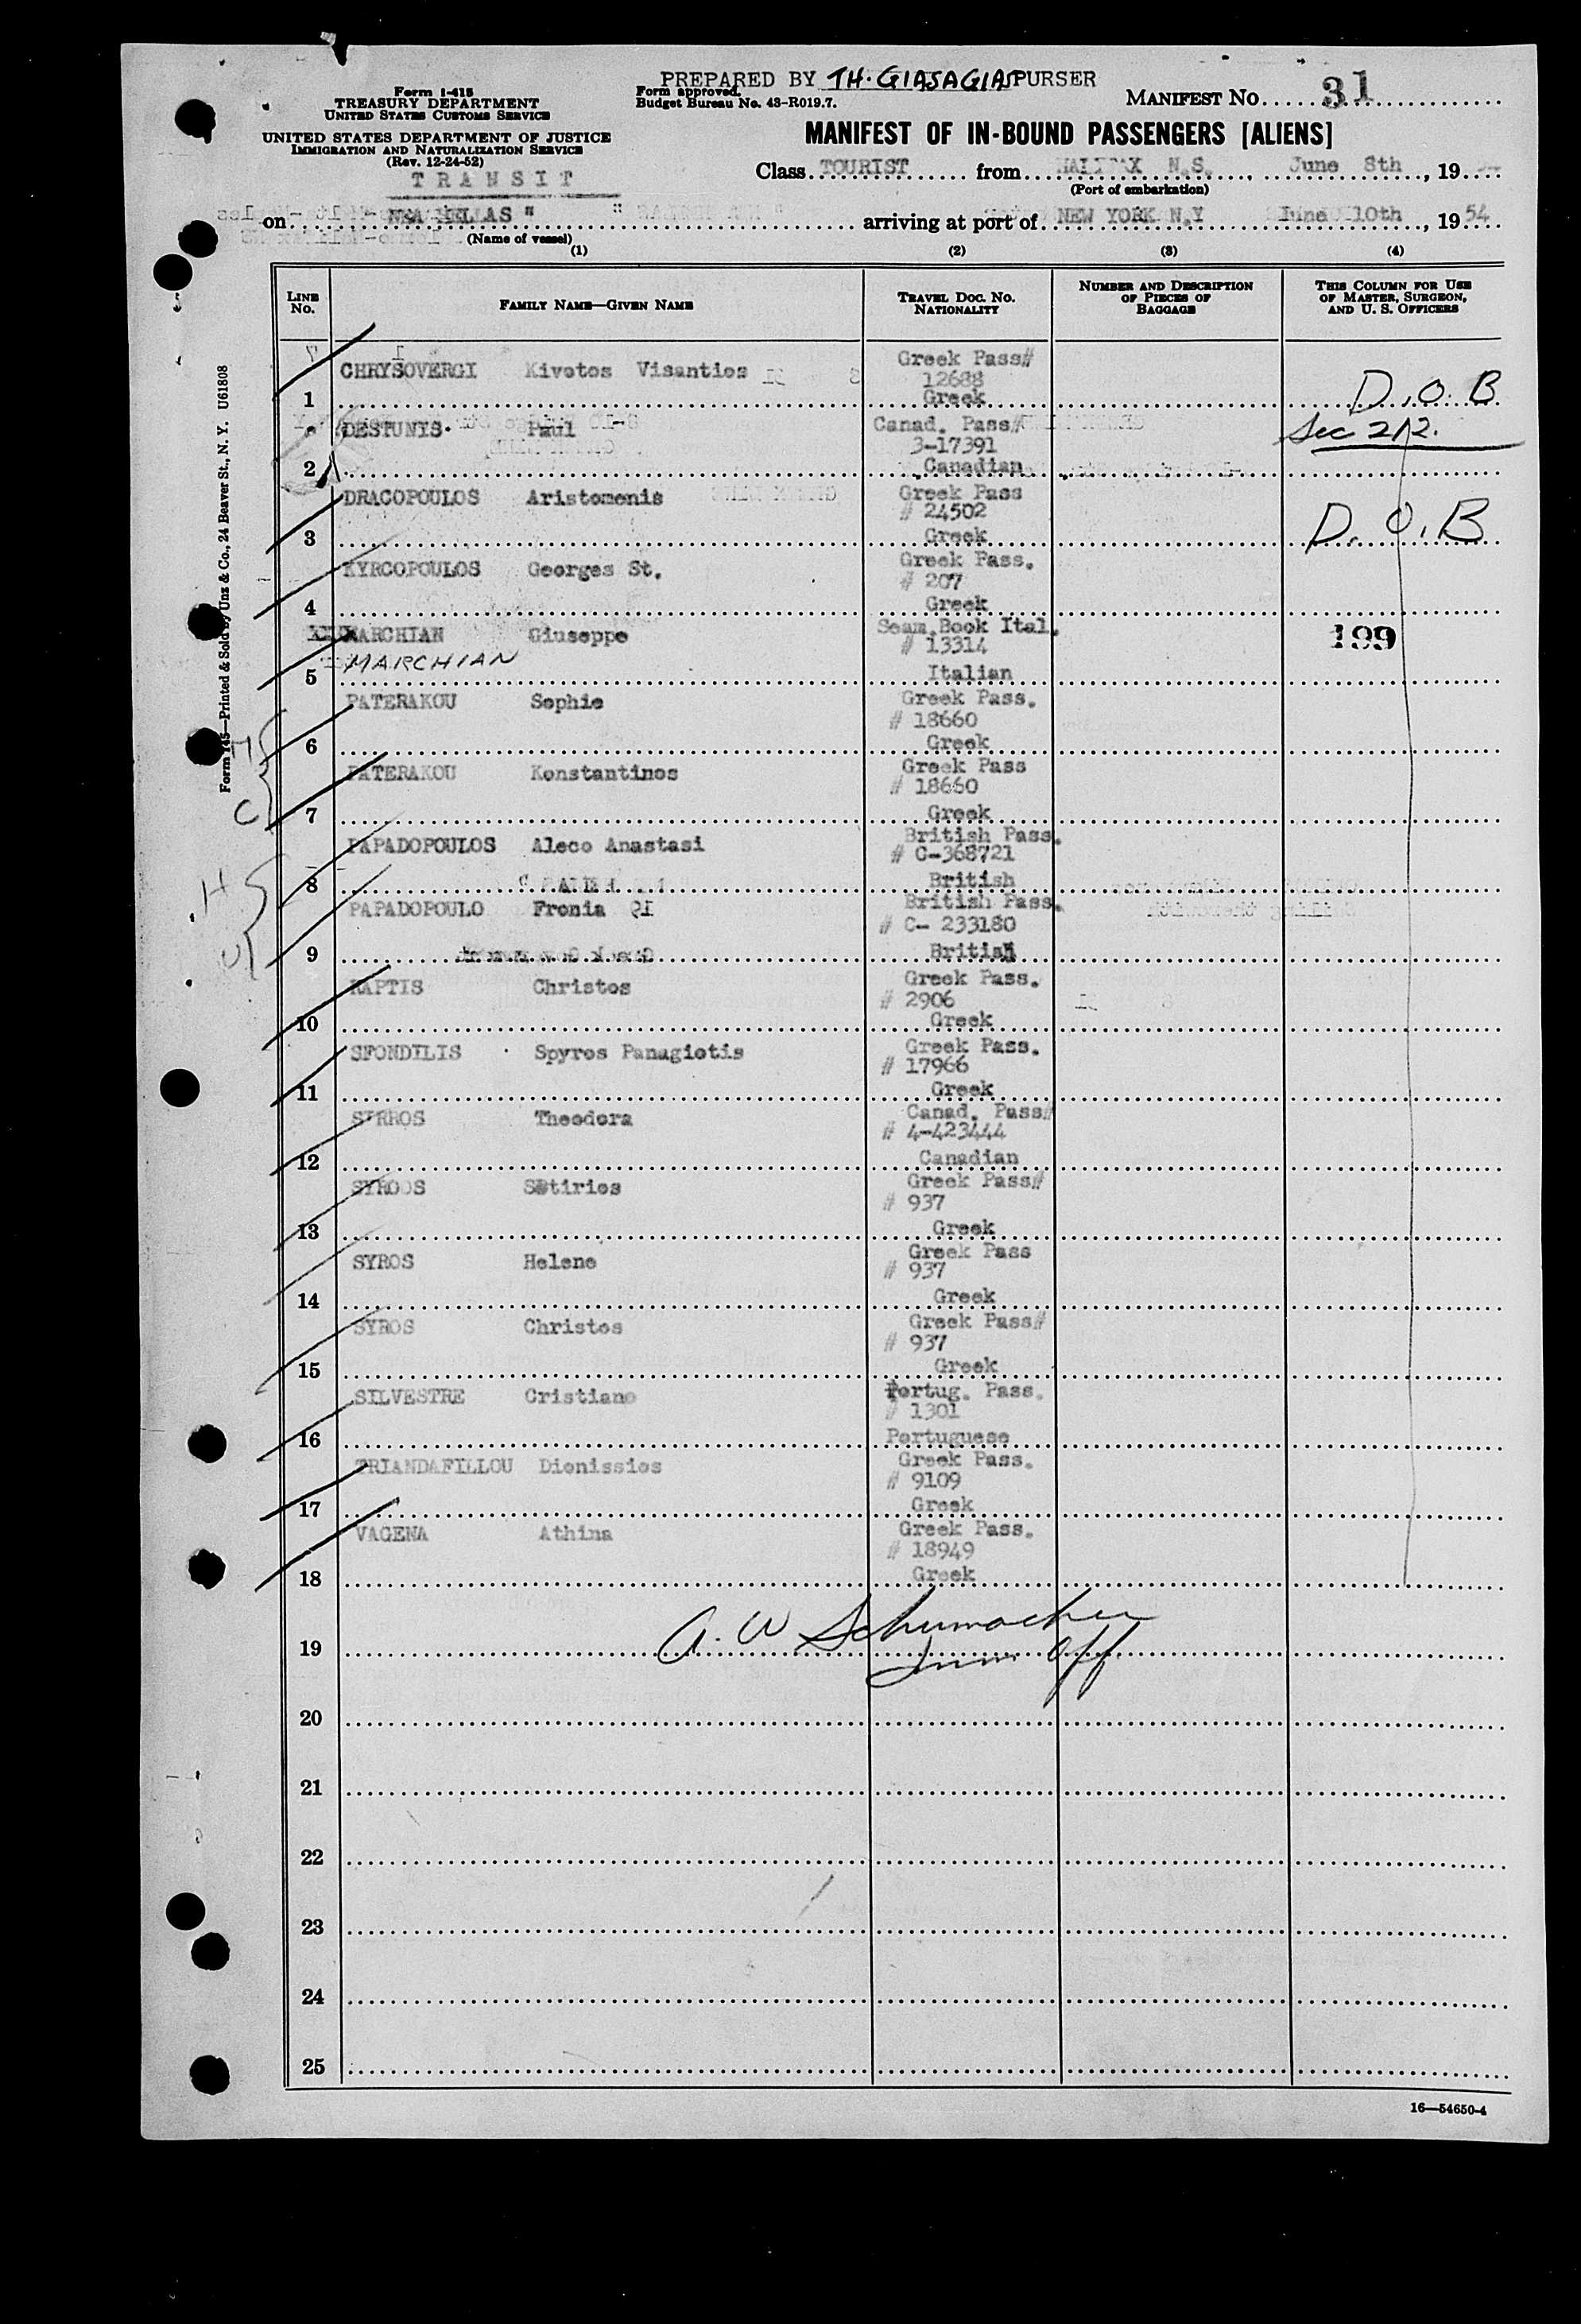 PREPARED BY TH. GIASAGIAS PURSER
Form I-415
TREASURY DEPARTMENT
UNITED STATES CUSTOMS SERVICE
UNITED STATES DEPARTMENT OF JUSTICE
IMMIGRATION AND NATURALIZATION SERVICE
(Rev. 12-24-52)
TRANSIT
Form approved.
Budget Bureau No. 43-R019.7.
MANIFEST NO. 31
MANIFEST OF IN-BOUND PASSENGERS [ALIENS]
Class TOURIST from HALIFAX N.S., June 8th, 19
(Port of embarkation)
on NEA HELLAS " arriving at port of NEW YORK N.Y June 10th, 1954
(Name of vessel)
(1) (2) (3) (4)
LINE NO.
FAMILY NAME—GIVEN NAME
TRAVEL DOC. NO. NATIONALITY
NUMBER AND DESCRIPTION OF PIECES OF BAGGAGE
THIS COLUMN FOR USE OF MASTER, SURGEON, AND U. S. OFFICERS
CHRYSOVERGI Kivotos Visantios Greek Pass#
12688
1 Greek D.O.B
DESTUNIS Paul Canad. Pass# Sec 212.
3-17391
2 Canadian
DRACOPOULOS Aristomenis Greek Pass
# 24502
3 Greek D.O.B
KYRCOPOULOS Georges St. Greek Pass.
# 207
4 Greek
MARCHIAN Giuseppe Seam.Book Ital. 199
# 13314
MARCHIAN
5 Italian
PATERAKOU Sophie Greek Pass.
# 18660
6 Greek
PATERAKOU Konstantinos Greek Pass
# 18660
7 Greek
PAPADOPOULOS Aleco Anastasi British Pass.
# C-368721
8 British
PAPADOPOULO Fronia British Pass.
# C- 233180
9 British
KAPTIS Christos Greek Pass.
# 2906
10 Greek
SFONDILIS Spyros Panagiotis Greek Pass.
# 17966
11 Greek
SYRROS Theodora Canad. Pass#
# 4-423444
12 Canadian
SYROOS Sotirios Greek Pass#
# 937
13 Greek
SYROS Helene Greek Pass
# 937
14 Greek
SYROS Christos Greek Pass#
# 937
15 Greek
SILVESTRE Cristiano Portug. Pass.
# 1301
16 Portuguese
TRIANDAFILLOU Dionissios Greek Pass.
# 9109
17 Greek
VAGENA Athina Greek Pass.
# 18949
18 Greek
A. W Schumacher
19 Imm Off.
20
21
22
23
24
25
16—54650-4
Form 745—Printed & Sold by Unz & Co., 24 Beaver St., N. Y. U61808